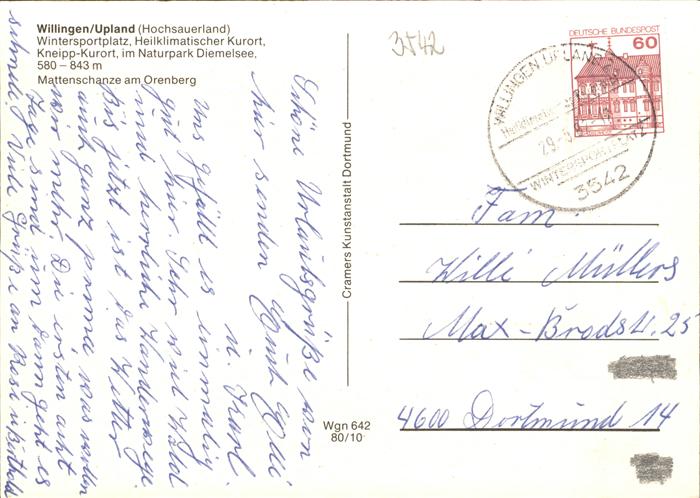 Willingen/Upland (Hochsauerland)
Wintersportplatz, Heilklimatischer Kurort,
Kneipp-Kurort, im Naturpark Diemelsee,
580 – 843 m
Mattenschanze am Orenberg
3542
DEUTSCHE BUNDESPOST
60
WILLINGEN UPLAND
29.
WINTERSPORTPLATZ
3542
Schöne Urlaubsgrüße von
hier senden Euch Elli
u. Karl.
Uns gefällt es einmalig
gut hier. Sehr viel Wald
und herrliche Wanderwege.
Bis jetzt ist das Wetter
auch ganz prima was wollen
wir mehr. Die ersten acht
Tage sind um dann geht es
schnell. Viele Grüße an
Cramers Kunstanstalt Dortmund
Wgn 642
80/10
Fam.
Willi Müllers
Max-Brodstr. 25
4600 Dortmund 14